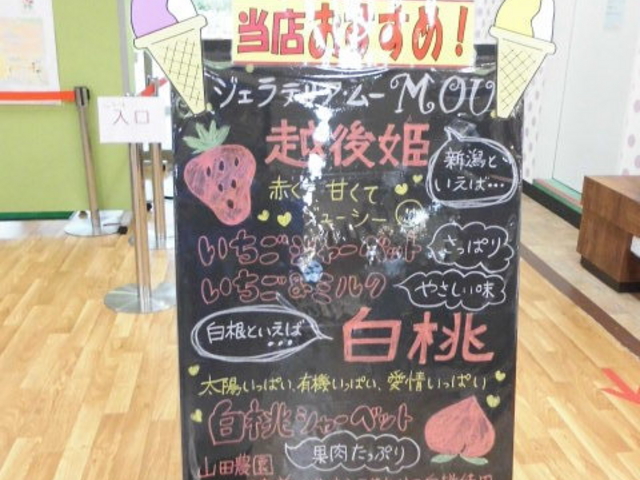 当店おすすめ!
ジェラテリア・ムー MOU
入口
越後姫
新潟と
いえば…
赤く 甘くて
ューシー
いちごシャーベット
さっぱり
いちご&ミルク
やさしい味
白根といえば
…
白桃
太陽いっぱい、有機いっぱい、愛情いっぱい
白桃シャーベット
果肉たっぷり
山田農園